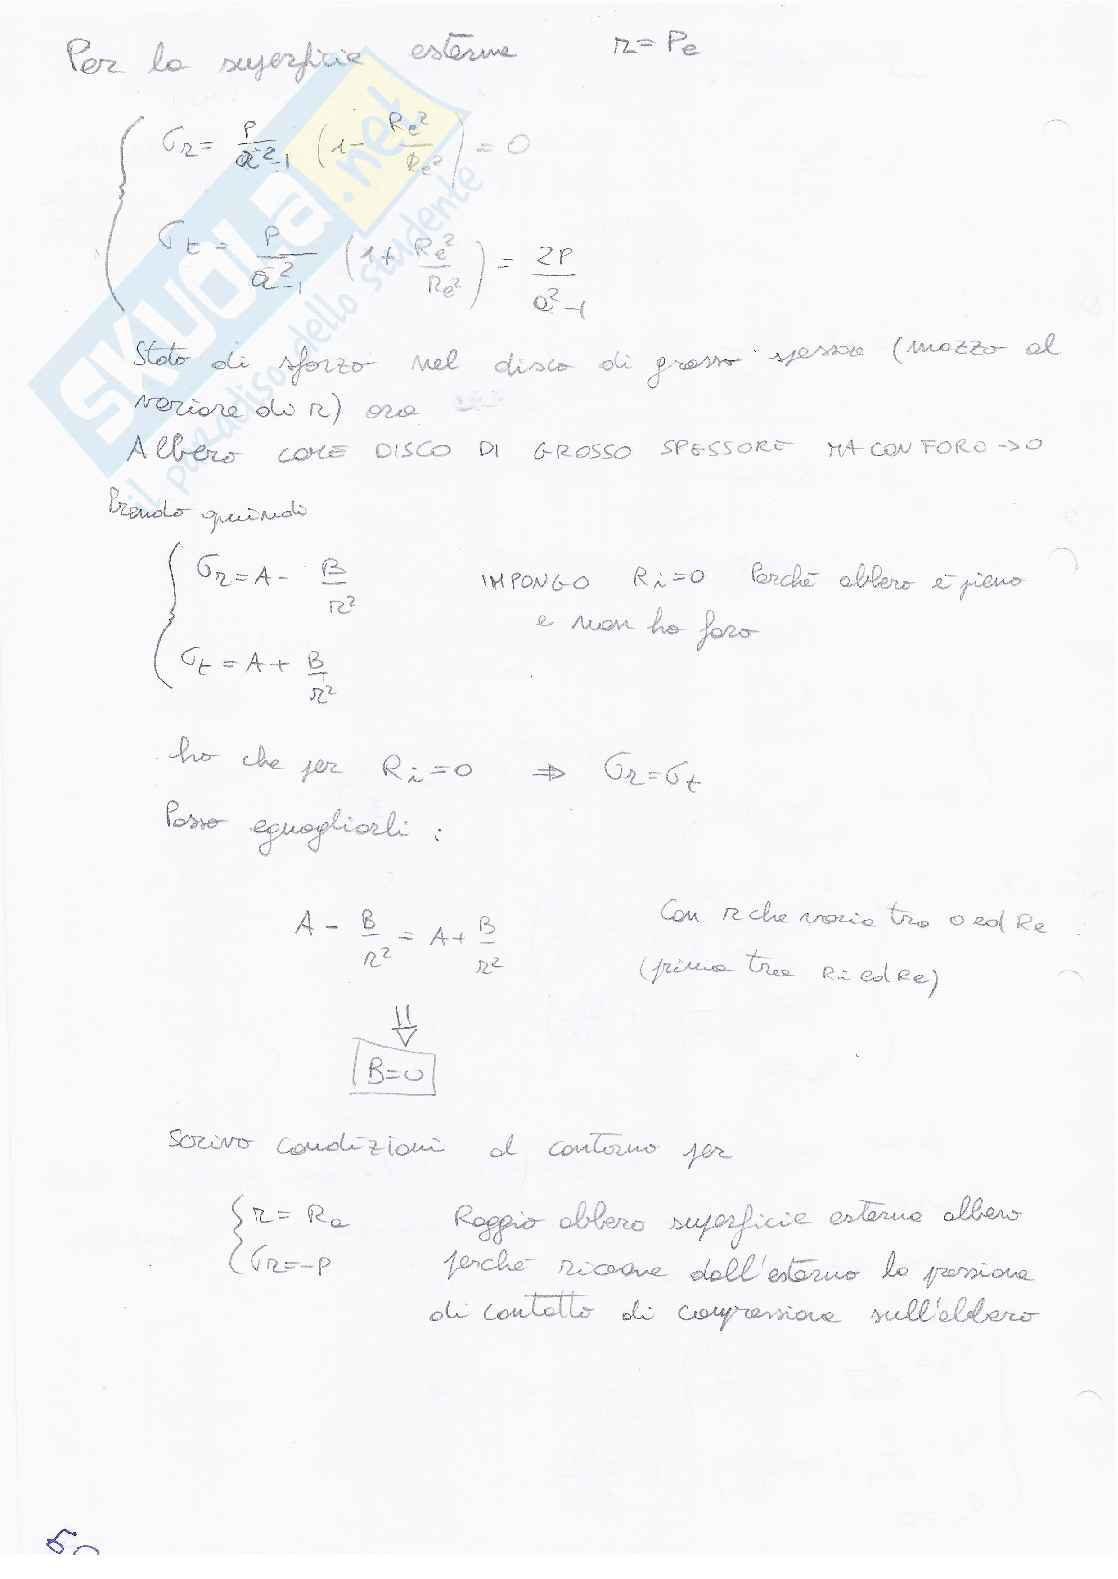 Per la superficie esterna r=Re
σr = P/(a²-1) (1 - Re²/Re²) = 0
σt = P/(a²-1) (1 + Re²/Re²) = 2P/(a²-1)
Stato di sforzo nel disco di grosso spessore (mozzo al
variare di r) ora
Albero COME DISCO DI GROSSO SPESSORE MA CON FORO → 0
Prendo quindi
σr = A - B/r² IMPONGO Ri=0 Perché albero è pieno
e non ho foro
σt = A + B/r²
ho che per Ri=0 ⇒ σr=σt
Posso eguagliarli :
A - B/r² = A + B/r² Con r che varia tra 0 ed Re
(prima tra Ri ed Re)
⇓
B=0
Scrivo condizioni al contorno per
r = Ra Raggio albero superficie esterna albero
σr=-P perché riceve dall'esterno la pressione
di contatto di compressione sull'albero
SKUOLA.net
il paradiso dello studente